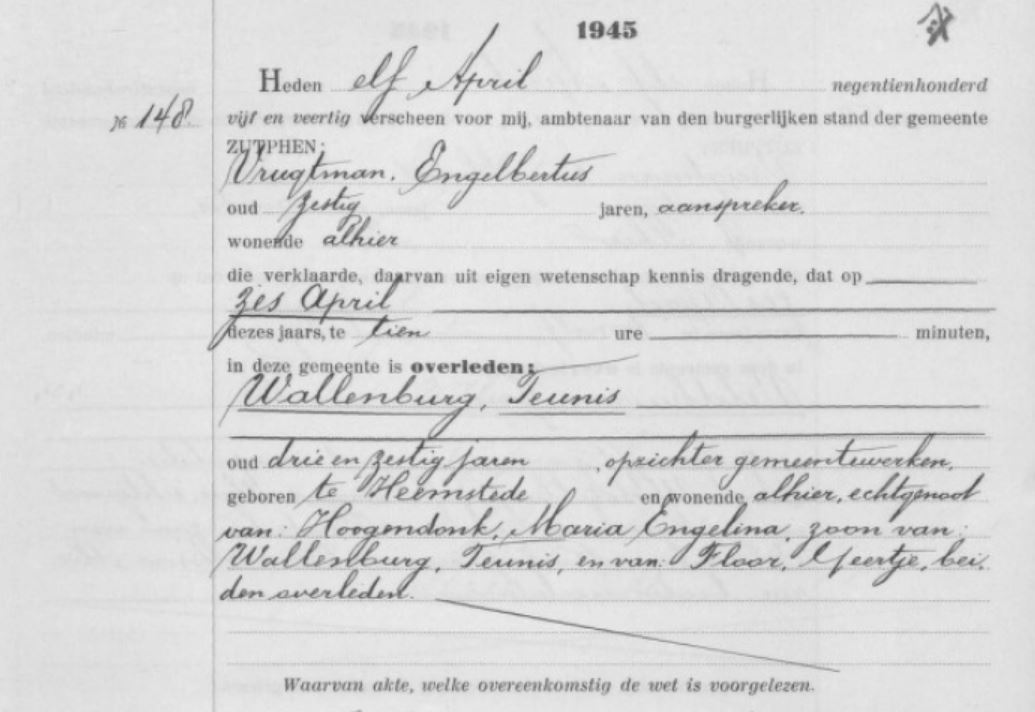 1945
Heden elf April negentienhonderd
№ 148. vijf en veertig verscheen voor mij, ambtenaar van den burgerlijken stand der gemeente
ZUTPHEN:
Vrugtman, Engelbertus
oud zestig jaren, aanspreker,
wonende alhier
die verklaarde, daarvan uit eigen wetenschap kennis dragende, dat op
zes April
dezes jaars, te tien ure minuten,
in deze gemeente is overleden:
Wallenburg, Teunis
oud drie en zestig jaren, opzichter gemeentewerken,
geboren te Heemstede en wonende alhier, echtgenoot
van: Hoogendonk, Maria Engelina, zoon van:
Wallenburg, Teunis, en van: Floor, Geertje, bei-
den overleden.
Waarvan akte, welke overeenkomstig de wet is voorgelezen.